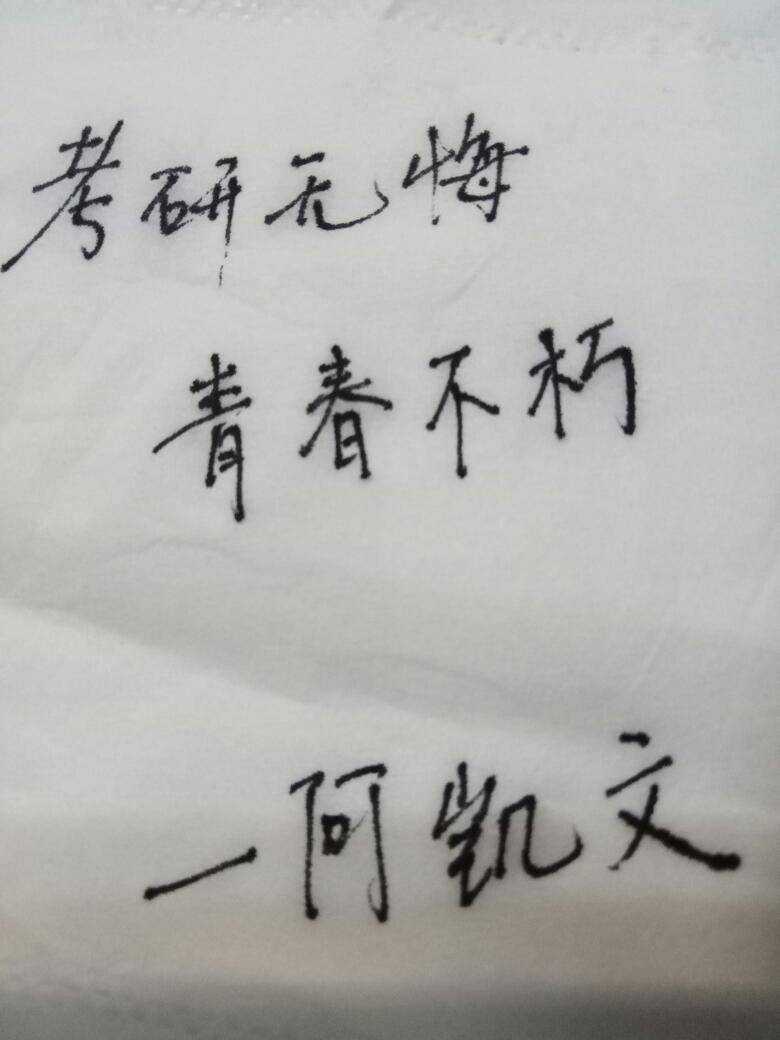 考研无悔
青春不朽
—阿凯文